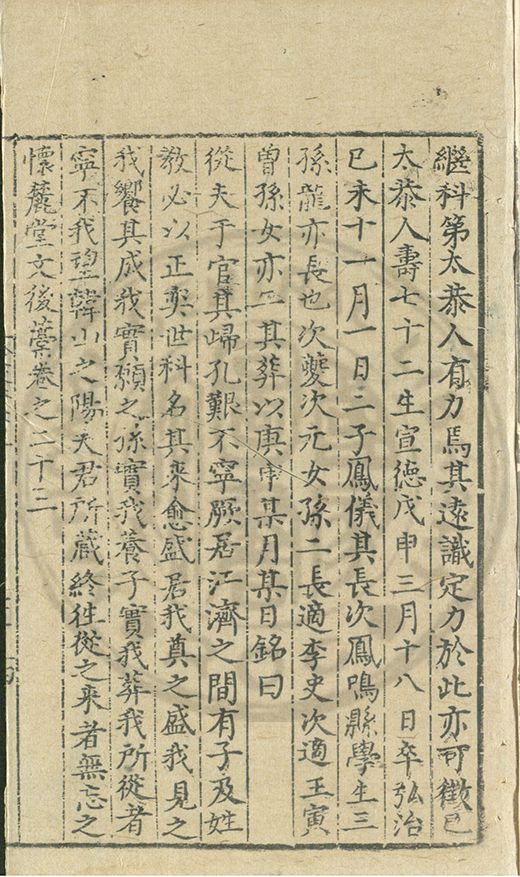 繼科第太恭人有力焉其遠識定力於此亦可徵已
太恭人壽七十二生宣德戊申三月十八日卒弘治
己未十一月一日二子鳳儀其長次鳳鳴縣學生三
孫龍亦長也次夔次元女孫二長適李史次適王寅
曾孫女亦二其葬以庚申某月某日銘曰
從夫于官其歸孔艱不寧厥居江濟之間有子及姓
教必以正奕世科名其来愈盛居我奠之盛我見之
我饗其成我實願之孫實我養子實我葬我所從者
寧不我望韓山之陽夫君所蔵終徃從之来者無忘之
懷麓堂文後藁卷之二十二